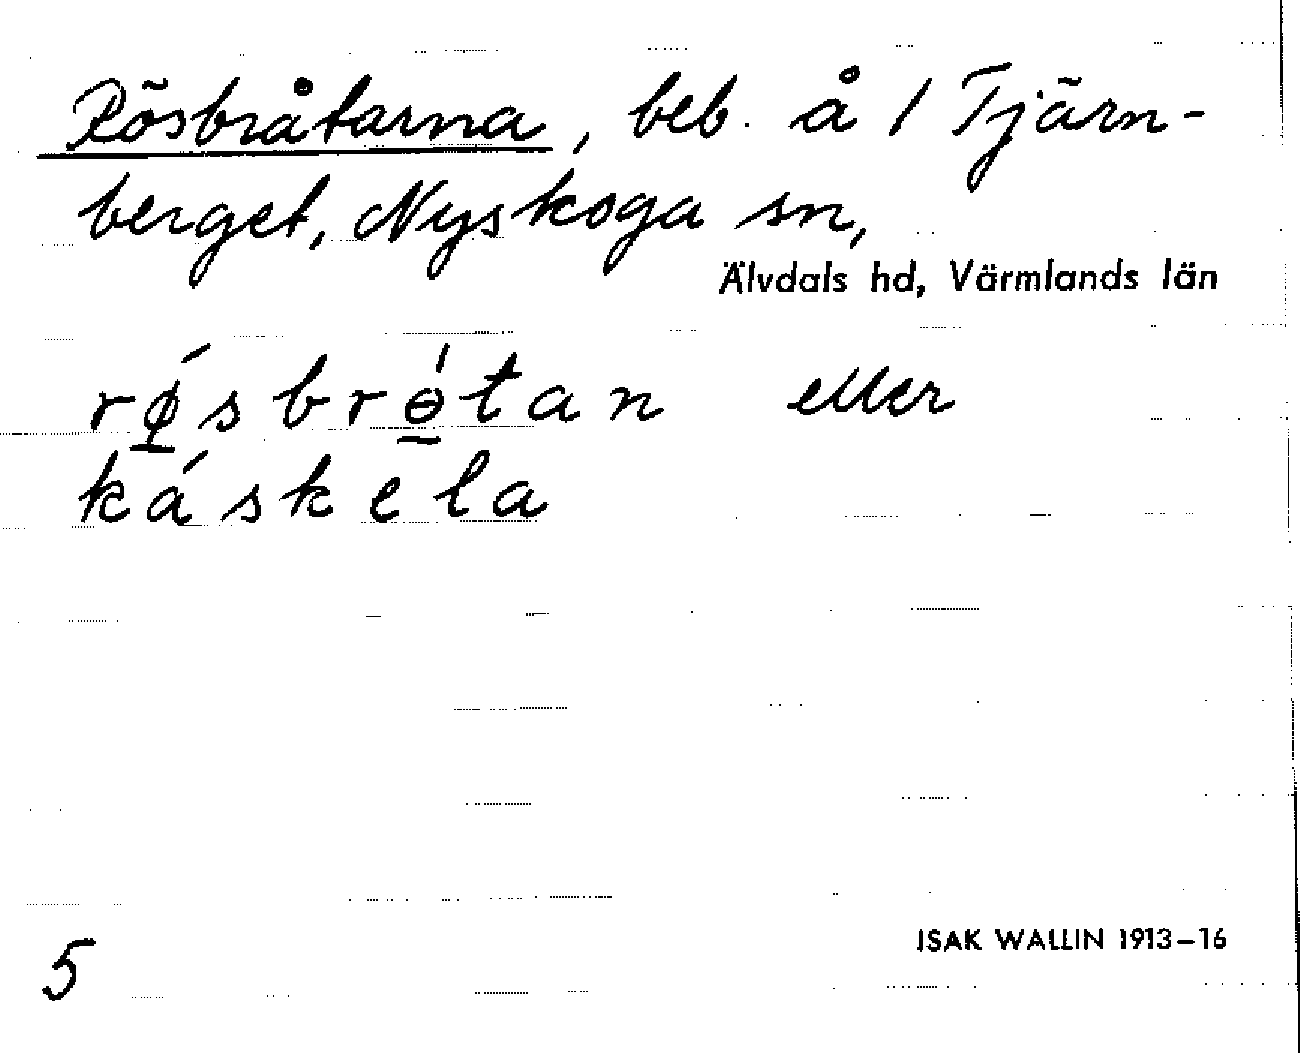 Rösbråtarna, beb. å 1 Tjärn-
berget, Nyskoga sn,
Älvdals hd, Värmlands län
rǿ̱sbrɵ̱́tan eller
káskela
5
ISAK WALLIN 1913-16